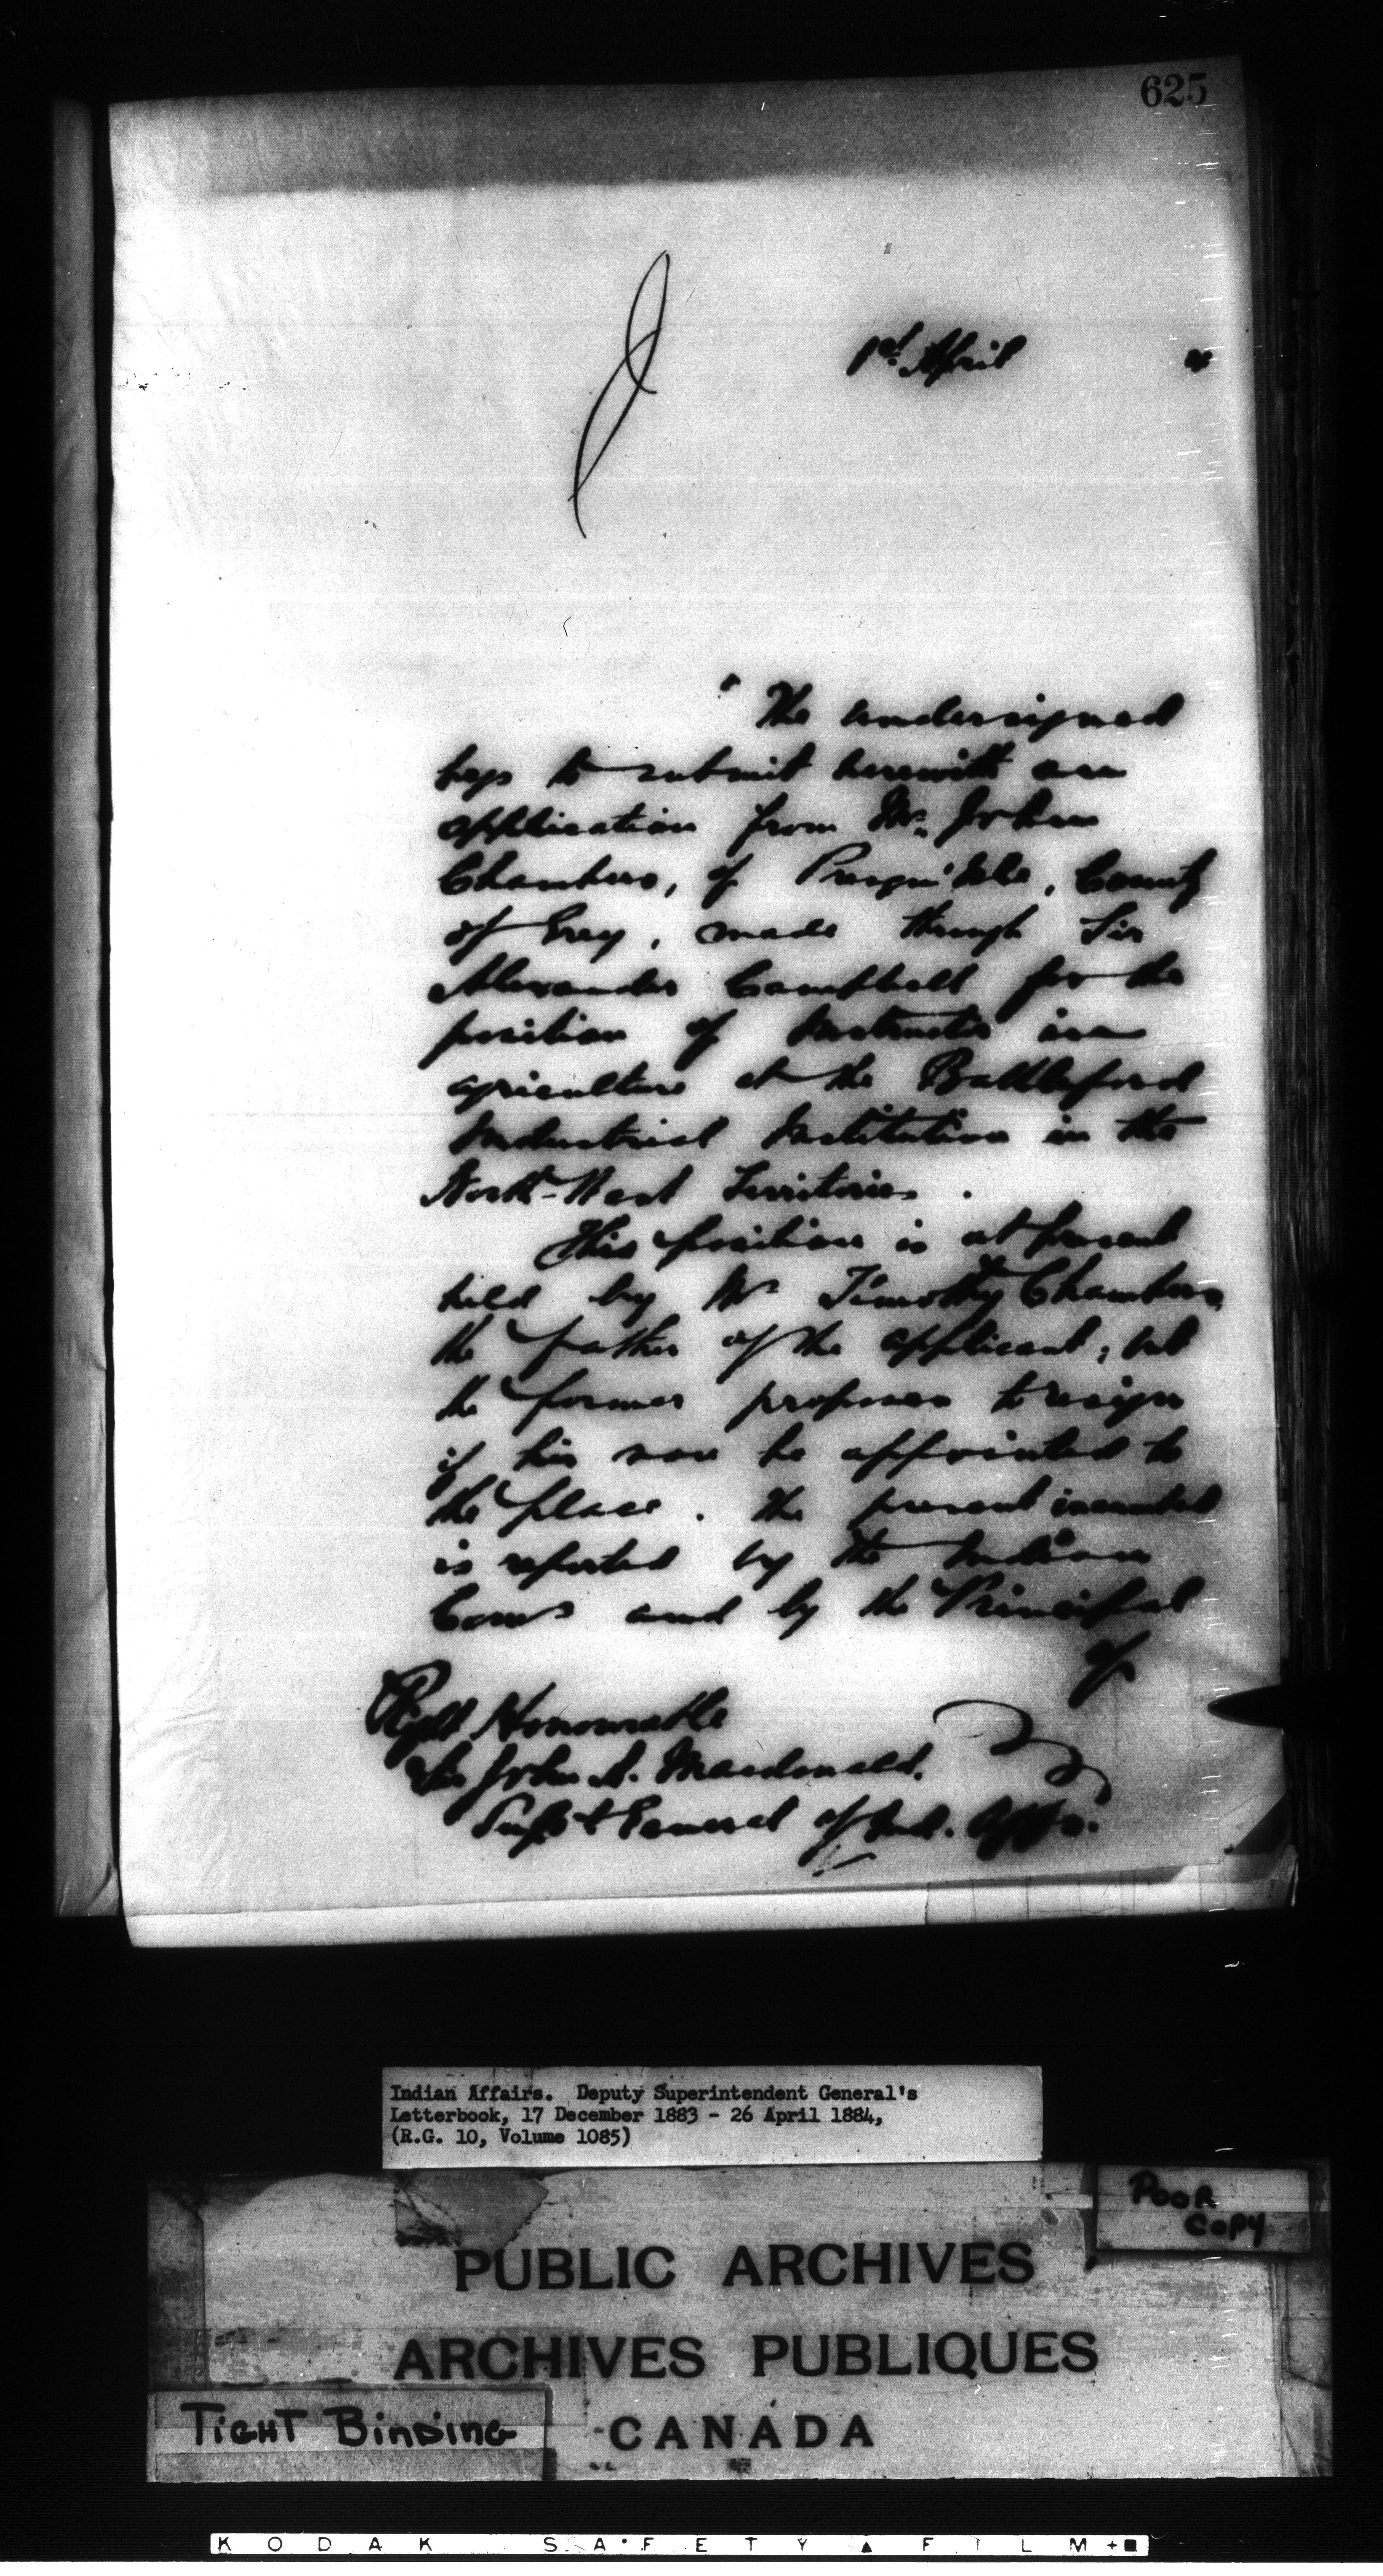 625
1st April 4
The undersigned
begs to submit herewith an
application from Mr. John
Chambers, of Presqu'Isle, County
of Grey, made through Sir
Alexander Campbell for the
position of Instructor in
agriculture at the Battleford
Industrial Institution in the
North-West Territories.
This position is at present
held by Mr Timothy Chambers,
the father of the applicant; but
the former proposes to resign
if his son be appointed to
the place. The present incumbent
is reported by the Indian
Comr and by the Principal
of
Right Honourable
Sir John A. Macdonald.
Supt General of Ind. Affrs.
Indian Affairs. Deputy Superintendent General's
Letterbook, 17 December 1883 - 26 April 1884,
(R.G. 10, Volume 1085)
POOR
COPY
PUBLIC ARCHIVES
ARCHIVES PUBLIQUES
TIGHT BINDING
CANADA
KODAK SAFETY FILM